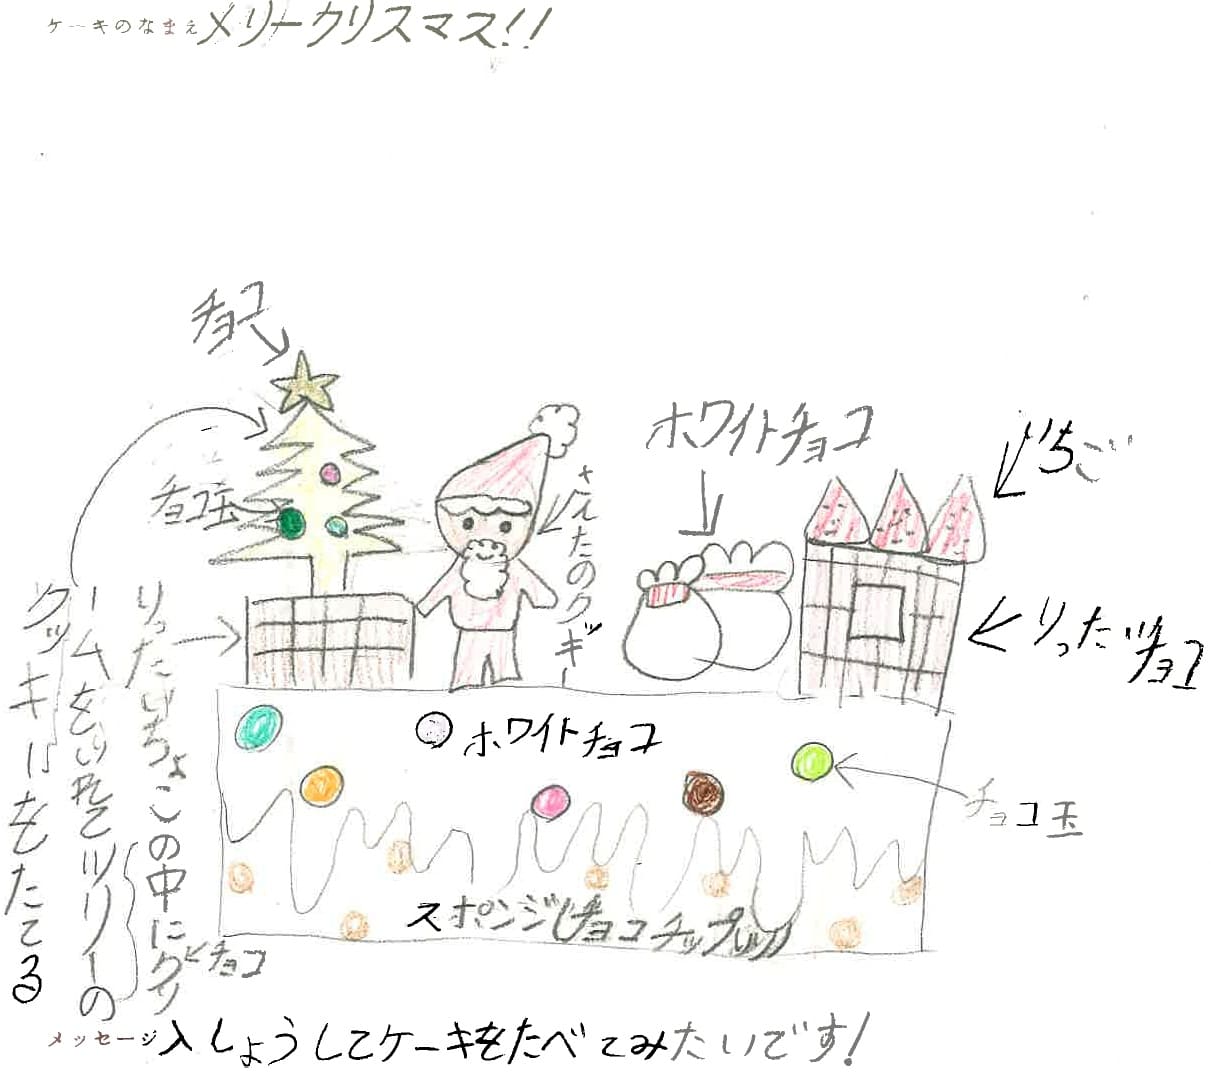 ケーキのなまえ メリークリスマス!!
チョコ
チョコ玉
さんたのクッキー
ホワイトチョコ
いちご
りったいチョコ
りったいちょこの中にクリ
ームをいれてツリーの
クッキーをたてる
チョコ
ホワイトチョコ
チョコ玉
スポンジ(チョコチップいり)
メッセージ 入しょうしてケーキをたべてみたいです!